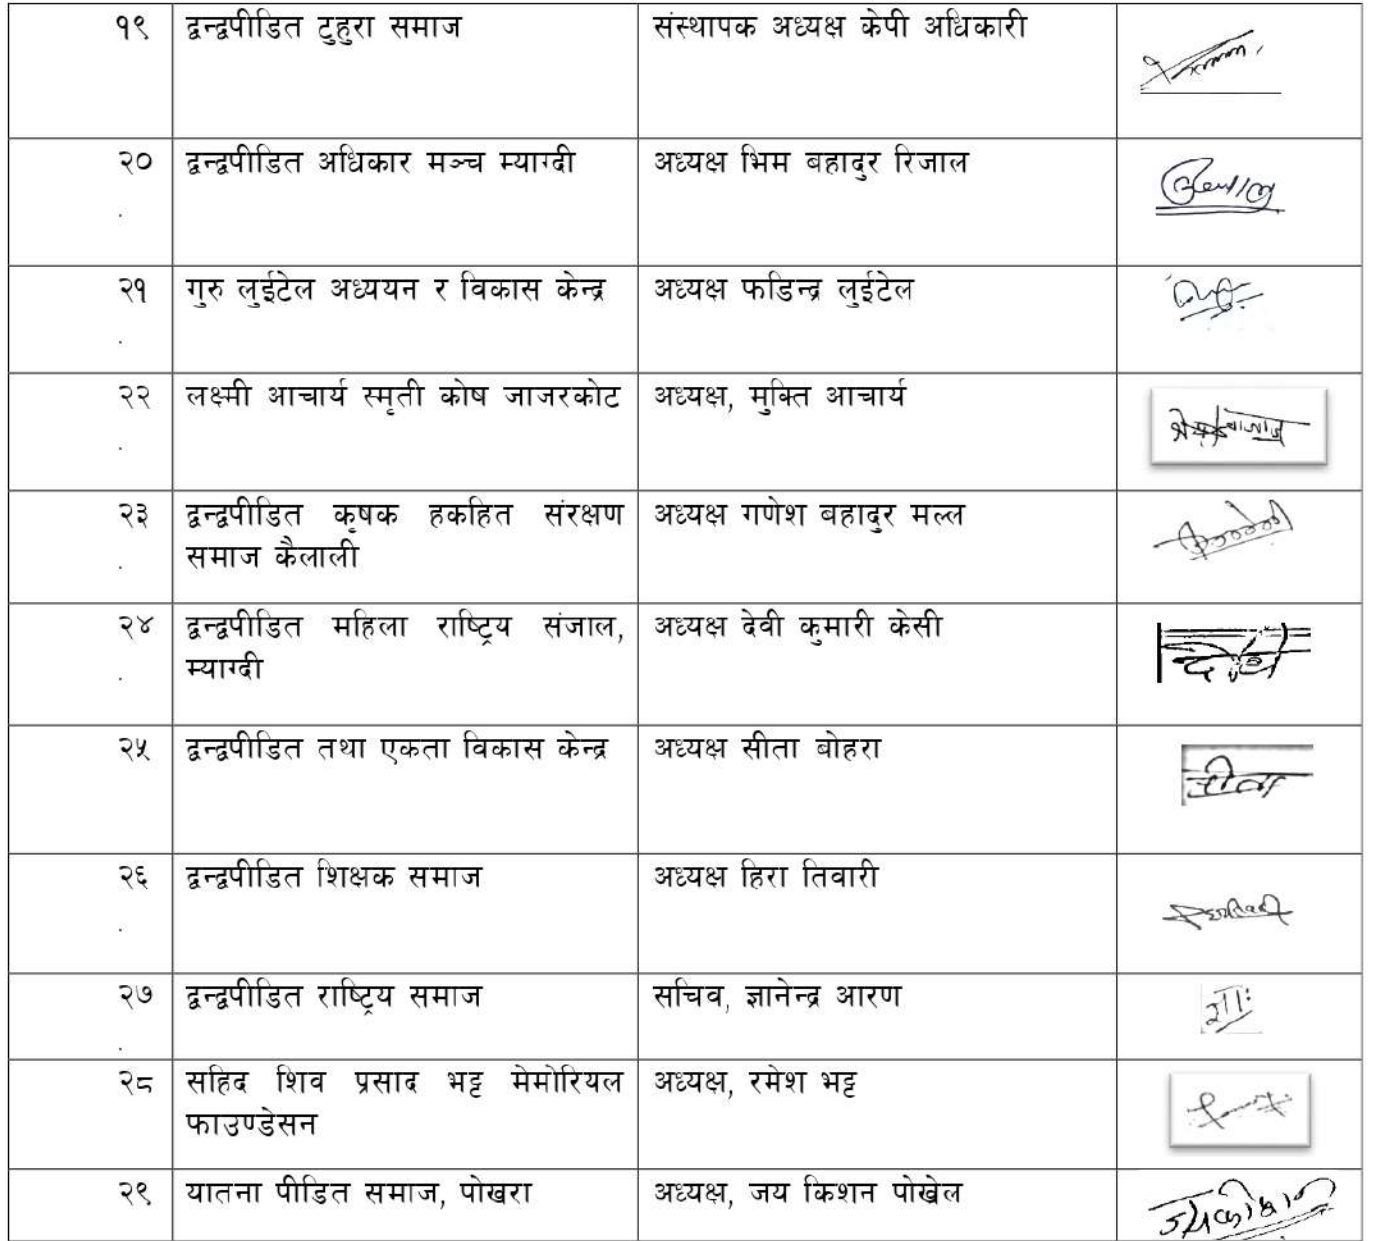 १९ द्वन्द्वपीडित टुहुरा समाज संस्थापक अध्यक्ष केपी अधिकारी
२० द्वन्द्वपीडित अधिकार मञ्च म्याग्दी अध्यक्ष भिम बहादुर रिजाल
.
२१ गुरु लुईटेल अध्ययन र विकास केन्द्र अध्यक्ष फडिन्द्र लुईटेल
.
२२ लक्ष्मी आचार्य स्मृती कोष जाजरकोट अध्यक्ष, मुक्ति आचार्य
.
२३ द्वन्द्वपीडित कृषक हकहित संरक्षण अध्यक्ष गणेश बहादुर मल्ल
. समाज कैलाली
२४ द्वन्द्वपीडित महिला राष्ट्रिय संजाल, अध्यक्ष देवी कुमारी केसी
. म्याग्दी
२५ द्वन्द्वपीडित तथा एकता विकास केन्द्र अध्यक्ष सीता बोहरा
सीता
२६ द्वन्द्वपीडित शिक्षक समाज अध्यक्ष हिरा तिवारी
.
२७ द्वन्द्वपीडित राष्ट्रिय समाज सचिव, ज्ञानेन्द्र आरण
.
२८ सहिद शिव प्रसाद भट्ट मेमोरियल अध्यक्ष, रमेश भट्ट
फाउण्डेसन
२९ यातना पीडित समाज, पोखरा अध्यक्ष, जय किशन पोखेल